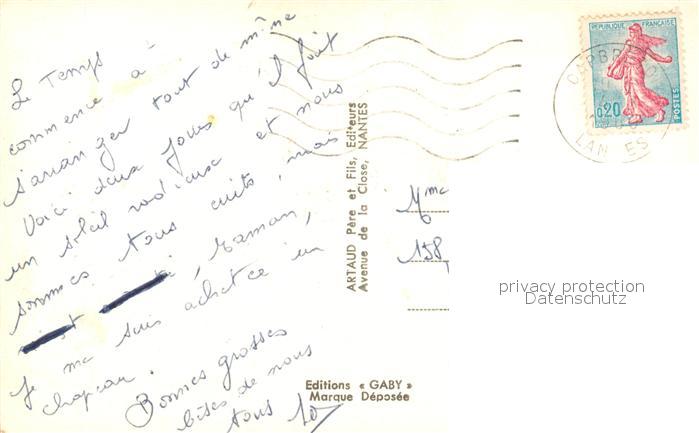 Le Temps
commence à
s'arranger tout de même
Voici deux jours qu'il fait
un soleil radieux et nous
sommes tous cuits, mais
, Maman,
Je me suis achetée un
chapeau.
Bonnes grosses
bises de nous
tous
ARTAUD Père et Fils, Editeurs
Avenue de la Close, NANTES
Mme
158
Editions « GABY »
Marque Déposée
REPUBLIQUE FRANÇAISE
0,20
POSTES
LANDES
privacy protection
Datenschutz